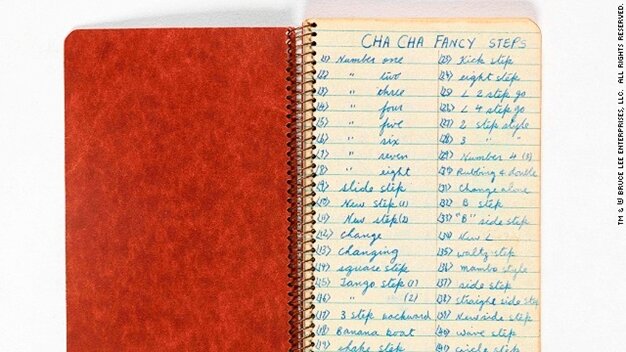 CHA CHA FANCY STEPS
(1) Number one
(2) " two
(3) " three
(4) " four
(5) " five
(6) " six
(7) " seven
(8) " eight
(9) slide step
(10) New step (1)
(11) New step (2)
(12) Change
(13) Changing
(14) square step
(15) Tango step (1)
(16) " (2)
(17) 3 step backward
(18) Banana boat
(19) shake step
(23) Kick step
(24) eight step
(25) L 2 step go
(26) L 4 step go
(27) 2 step style
(28) 3 " "
(29) Number 4 (3)
(30) Rubbing & double
(31) Change alone
(32) B step
(33) "B" side step
(34) New L
(35) waltz step
(36) mambo style
(37) side step
(38) straight side step
(39) New side step
(40) wave step
(41) circle step
TM & © BRUCE LEE ENTERPRISES, LLC. ALL RIGHTS RESERVED.